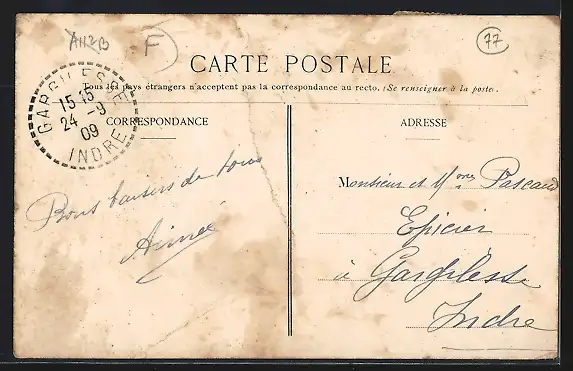 A112B
F
77
CARTE POSTALE
Tous les pays étrangers n'acceptent pas la correspondance au recto. (Se renseigner à la poste.
GARGILESSE
15 15
24 -9
09
INDRE
CORRESPONDANCE
ADRESSE
Bons baisers de tous
Aimée
Monsieur et Pascaud
Epicier
à Gargilesse
Indre